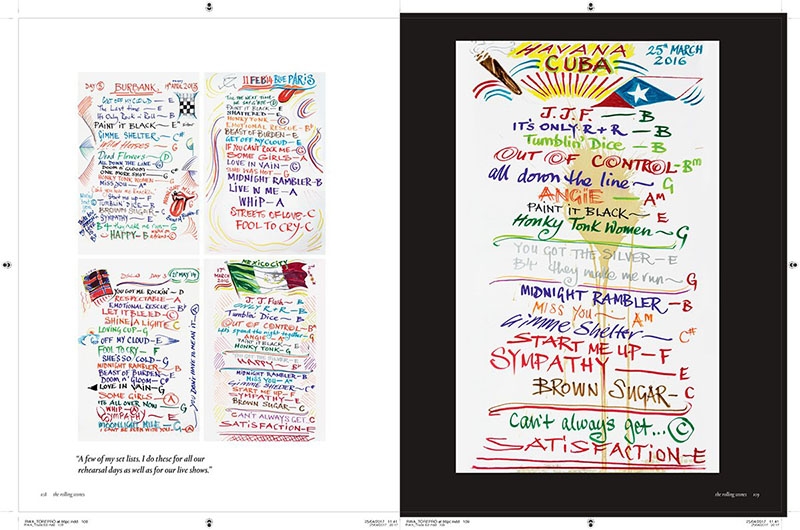 DAY 3 BURBANK 9th APRIL 2013
GET OFF MY CLOUD – E
The Last time – E
It's Only Rock n' Roll – B
PAINT IT BLACK – E
GIMME SHELTER – C#
Wild Horses – G
Dead Flowers – D
ALL DOWN THE LINE – G
DOOM n' GLOOM
ONE MORE SHOT –
HONKY TONK WOMEN – G
MISS YOU – Am
Start me up – F
TUMBLIN' DICE – B
BROWN SUGAR – C
SYMPATHY – E
B4 they make me run – G
HAPPY – B
11 FEB 14 PARIS
PAINT IT BLACK – E
SHATTERED – E
HONKY TONK – G
EMOTIONAL RESCUE – Bb
BEAST OF BURDEN – E
GET OFF MY CLOUD – E
IF YOU CAN'T ROCK ME – G
SOME GIRLS – A
LOVE IN VAIN – G
SHE WAS HOT – G
MIDNIGHT RAMBLER – B
LIVE W ME – A
WHIP – A
STREETS OF LOVE – C
FOOL TO CRY – C
DAY 3 21st MAY 14
YOU GOT ME ROCKIN' – D
RESPECTABLE – A
EMOTIONAL RESCUE – Bb
LET IT BLEED – C
SHINE A LIGHT – C
LOVING CUP – G
OFF MY CLOUD – E
FOOL TO CRY – F
SHE'S SO COLD – G
MIDNIGHT RAMBLER – B
BEAST OF BURDEN – E
DOOM n' GLOOM – C#
LOVE IN VAIN – G
SOME GIRLS – A
ITS ALL OVER NOW – G
WHIP – A
SYMPATHY – E
MOONLIGHT MILE – G
I CAN'T BE SEEN WITH YOU – A
17th MARCH 2016
MEXICO CITY
J. J. Flash – B
ONLY R + R – B
Tumblin' Dice – B
OUT OF CONTROL – Bm
Let's spend the night together – G
ANGIE – Am
PAINT IT BLACK – E
HONKY TONK – G
YOU GOT THE SILVER – E
HAPPY – B
MIDNIGHT RAMBLER – B
MISS YOU – Am
GIMME SHELTER – C#
START ME UP – F
SYMPATHY – E
BROWN SUGAR – C
CAN'T ALWAYS GET – C
SATISFACTION – E
"A few of my set lists. I do these for all our
rehearsal days as well as for our live shows."
118 the rolling stones
HAVANA
CUBA
25th MARCH
2016
J. J. F. – B
IT'S ONLY R + R – B
Tumblin' Dice – B
OUT OF CONTROL – Bm
all down the line ~ G
ANGIE – Am
PAINT IT BLACK ~ E
Honky Tonk Women ~ G
YOU GOT THE SILVER – E
B4 they make me run ~ G
MIDNIGHT RAMBLER – B
MISS YOU – Am
Gimme Shelter ~ C#
START ME UP – F
SYMPATHY – E
BROWN SUGAR – C
Can't always get... C
SATISFACTION – E
the rolling stones 119